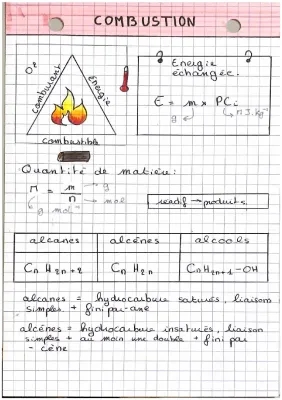 COMBUSTION
O²
comburant
Energie
combustible
Energie
échangée.
E = m × PCi
g
MJ.kg⁻¹
Quantité de matière:
M = m/n
g
mol
g mol⁻¹
réactif → produits.
alcanes alcènes alcools
Cn H2n+2 Cn H2n CnH2n+1-OH
alcanes = hydrocarbure saturés, liaisons
simples + fini par -ane
alcènes = hydrocarbure insaturés, liaison
simples + au moin une double + fini par
- cène